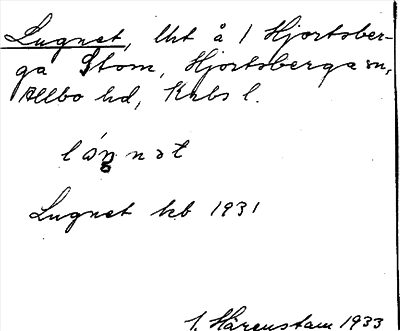 Lugnet, lht å 1 Hjortsber-
ga Stom, Hjortsberga sn,
Allbo hd, Krbs l.
Lugnet kb 1931
I. Hårenstam 1933